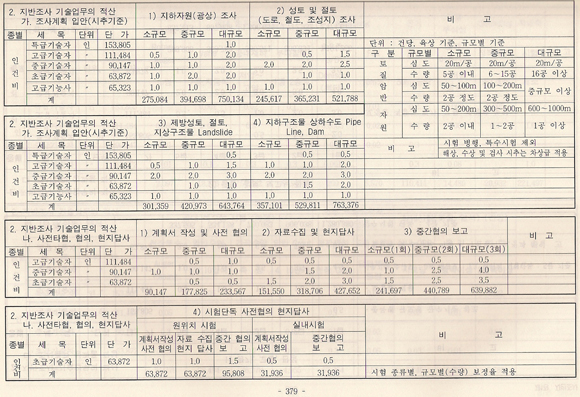 2. 지반조사 기술업무의 적산 1) 지하자원(광상) 조사 2) 성토 및 절토 비 고
가. 조사계획 입안(시추기준) (도로, 철도, 조성지) 조사
종별 세 목 단위 단 가 소규모 중규모 대규모 소규모 중규모 대규모 단위 : 건당, 육상 기준, 규모별 기준
인건비 특급기술자 인 153,805 1.0 구 분 규모별 소규모 중규모 대규모
고급기술자 〃 111,484 0.5 1.0 2.0 0.5 1.5 보 심 도 20m/공 20m/공 20m/공
중급기술자 〃 90,147 1.0 1.0 2.0 2.0 2.0 2.5 질 수 량 5공 이내 6~15공 16공 이상
초급기술자 〃 63,872 1.0 2.0 2.0 1.0 1.0 암 심 도 50~100m 100~200m 중규모 이상
고급기능사 〃 65,323 1.0 1.0 1.0 1.0 1.0 1.0 반 수 량 2공 정도 2공 정도
계 275,084 394,698 750,134 245,617 365,231 521,788 자 심 도 50~200m 300~500m 600~1000m
원 수 량 2공 이내 1~2공 1공 이상
비 고 시험 병행, 특수시험 제외
해상, 수상 및 검사 시추는 차상급 적용
2. 지반조사 기술업무의 적산 3) 제방성토, 절토, 4) 지하구조물 상하수도 Pipe
가. 조사계획 입안(시추기준) 지상구조물 Landslide Line, Dam
종별 세 목 단위 단 가 소규모 중규모 대규모 소규모 중규모 대규모
인건비 특급기술자 인 153,805 0.5 0.5 0.5
고급기술자 〃 111,484 0.5 1.0 1.5 1.0 1.0 2.0
중급기술자 〃 90,147 2.0 2.0 3.0 2.0 2.0 3.0
초급기술자 〃 63,872 1.0 1.0 1.5 2.0
고급기능사 〃 65,323 1.0 1.0 1.0 1.0 1.0 1.0
계 301,359 420,973 643,764 357,101 529,811 763,376
2. 지반조사 기술업무의 적산 1) 계획서 작성 및 사전 협의 2) 자료수집 및 현지답사 3) 중간협의 보고 비 고
나. 사전타협, 협의, 현지답사
종별 세 목 단위 단 가 소규모 중규모 대규모 소규모 중규모 대규모 소규모(1회) 중규모(2회) 대규모(3회)
인건비 고급기술자 인 111,484 0.5 1.0 0.5 1.0 0.5 0.5 0.5
중급기술자 〃 90,147 1.0 1.0 1.0 1.5 2.0 1.0 2.5 4.0
초급기술자 〃 63,872 0.5 0.5 1.5 2.0 3.0 1.5 2.5 3.5
계 90,147 177,825 233,567 151,550 318,706 427,652 241,697 440,789 639,882
2. 지반조사 기술업무의 적산 4) 시험단독 사전협의 현지답사 비 고
나. 사전타협, 협의, 현지답사 원위치 시험 실내시험
종별 세 목 단위 단 가 계획서작성 사전 협의 자료 수집 현지 답사 중간 협의 보 고 계획서작성 사전 협의 중간협의 보 고
인건비 초급기술자 인 63,872 1.0 1.0 1.5 0.5 0.5
계 63,872 63,872 95,808 31,936 31,936 시험 종류별, 규모별(수량) 보정율 적용
- 379 -